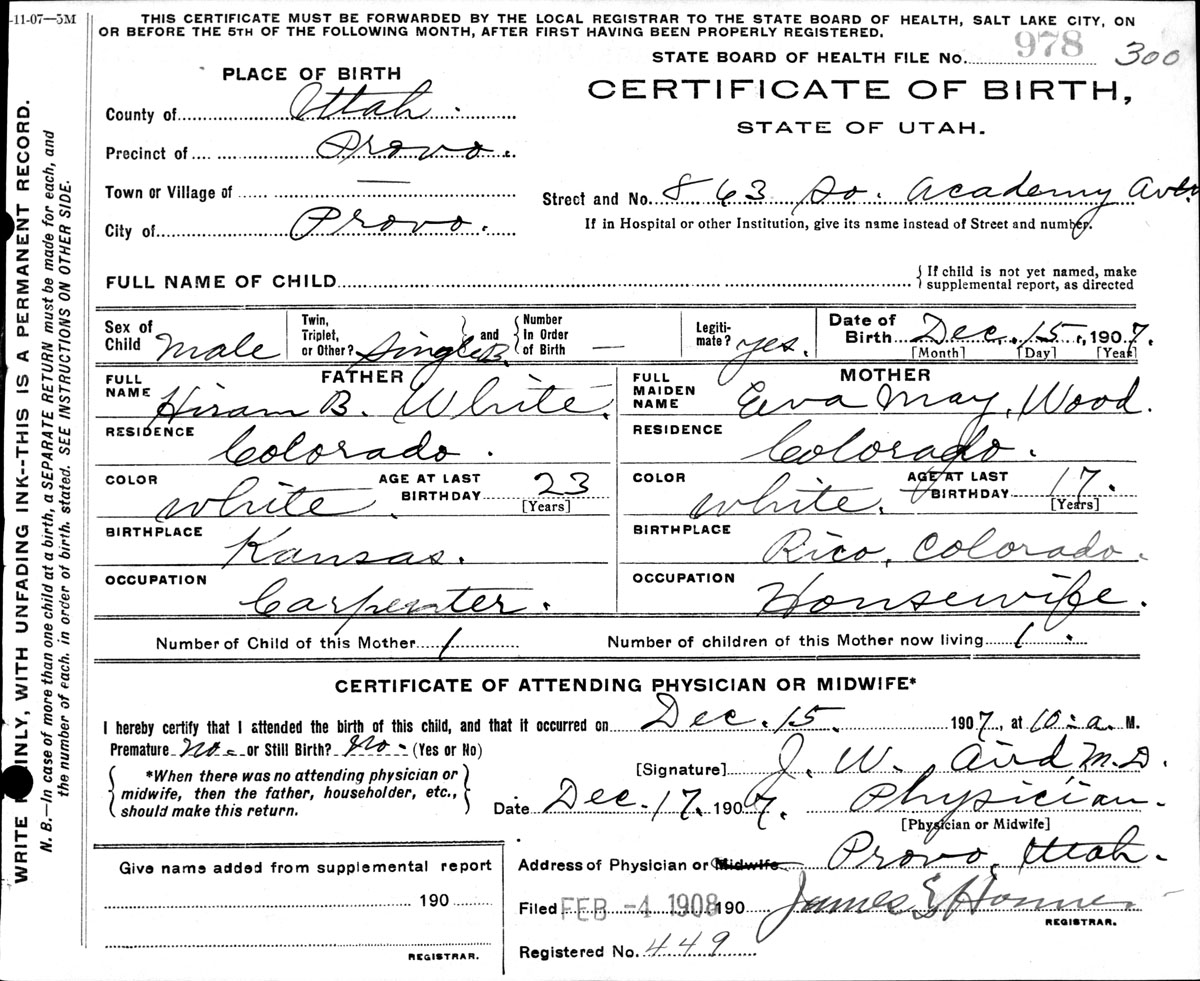 -11-07—3M
THIS CERTIFICATE MUST BE FORWARDED BY THE LOCAL REGISTRAR TO THE STATE BOARD OF HEALTH, SALT LAKE CITY, ON
OR BEFORE THE 5TH OF THE FOLLOWING MONTH, AFTER FIRST HAVING BEEN PROPERLY REGISTERED.
STATE BOARD OF HEALTH FILE No. 978 300
PLACE OF BIRTH
CERTIFICATE OF BIRTH,
STATE OF UTAH.
County of Utah.
Precinct of Provo.
Town or Village of —
City of Provo.
Street and No. 863 So. Academy Ave.
If in Hospital or other Institution, give its name instead of Street and number.
FULL NAME OF CHILD
{If child is not yet named, make
supplemental report, as directed
Sex of Child Male
Twin, Triplet, or Other? Single
and {Number In Order of Birth —
Legiti-mate? yes.
Date of Birth Dec. 15, 1907.
[Month] [Day] [Year]
FATHER
FULL NAME Hiram B. White.
RESIDENCE Colorado.
COLOR white.
AGE AT LAST BIRTHDAY 23
[Years]
BIRTHPLACE Kansas.
OCCUPATION Carpenter.
MOTHER
FULL MAIDEN NAME Eva May Wood.
RESIDENCE Colorado.
COLOR white.
AGE AT LAST BIRTHDAY 17.
[Years]
BIRTHPLACE Rico, Colorado.
OCCUPATION Housewife.
Number of Child of this Mother 1
Number of children of this Mother now living 1.
CERTIFICATE OF ATTENDING PHYSICIAN OR MIDWIFE*
I hereby certify that I attended the birth of this child, and that it occurred on Dec. 15. 1907, at 10-a. M.
Premature No- or Still Birth? No- (Yes or No)
*When there was no attending physician or
midwife, then the father, householder, etc.,
should make this return.
[Signature] J. W. Aird M.D.
Date Dec. 17. 1907. Physician.
[Physician or Midwife]
Address of Physician or Midwife Provo, Utah.
Filed FEB -4 1908 190
James E
REGISTRAR.
Registered No. 449
Give name added from supplemental report
190
REGISTRAR.
WRITE INLY, WITH UNFADING INK--THIS IS A PERMANENT RECORD.
N. B.—In case of more than one child at a birth, a SEPARATE RETURN must be made for each, and
the number of each, in order of birth, stated. SEE INSTRUCTIONS ON OTHER SIDE.